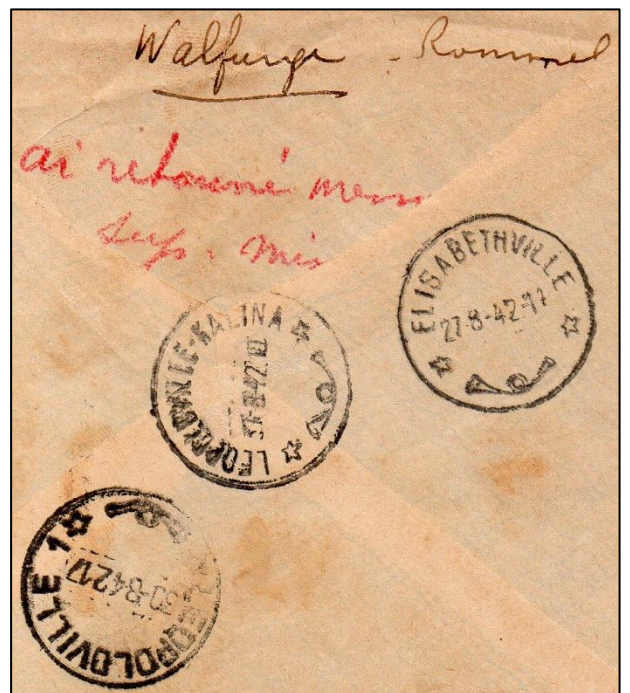 Walfurge - Rommel
ai retourné
ELISABETHVILLE
27-8-42-17
LEOPOLDVILLE-KALINA
31-8-42
LEOPOLDVILLE 1
30-8-42 17